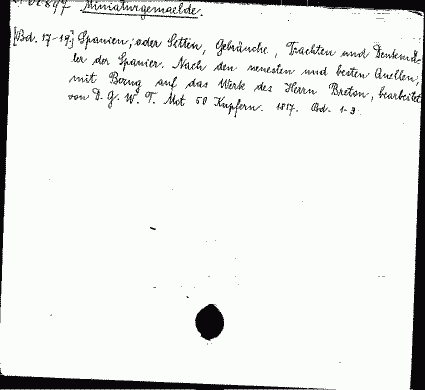 Miniaturgemaelde.
[Bd. 17-19] Spanien; oder Sitten, Gebräuche, Trachten und Denkmä-
ler der Spanier. Nach den neuesten und besten Quellen,
mit Bezug auf das Werk des Herrn Breton, bearbeitet
von D. G. W. T. Mit 50 Kupfern. 1817. Bd. 1-3.